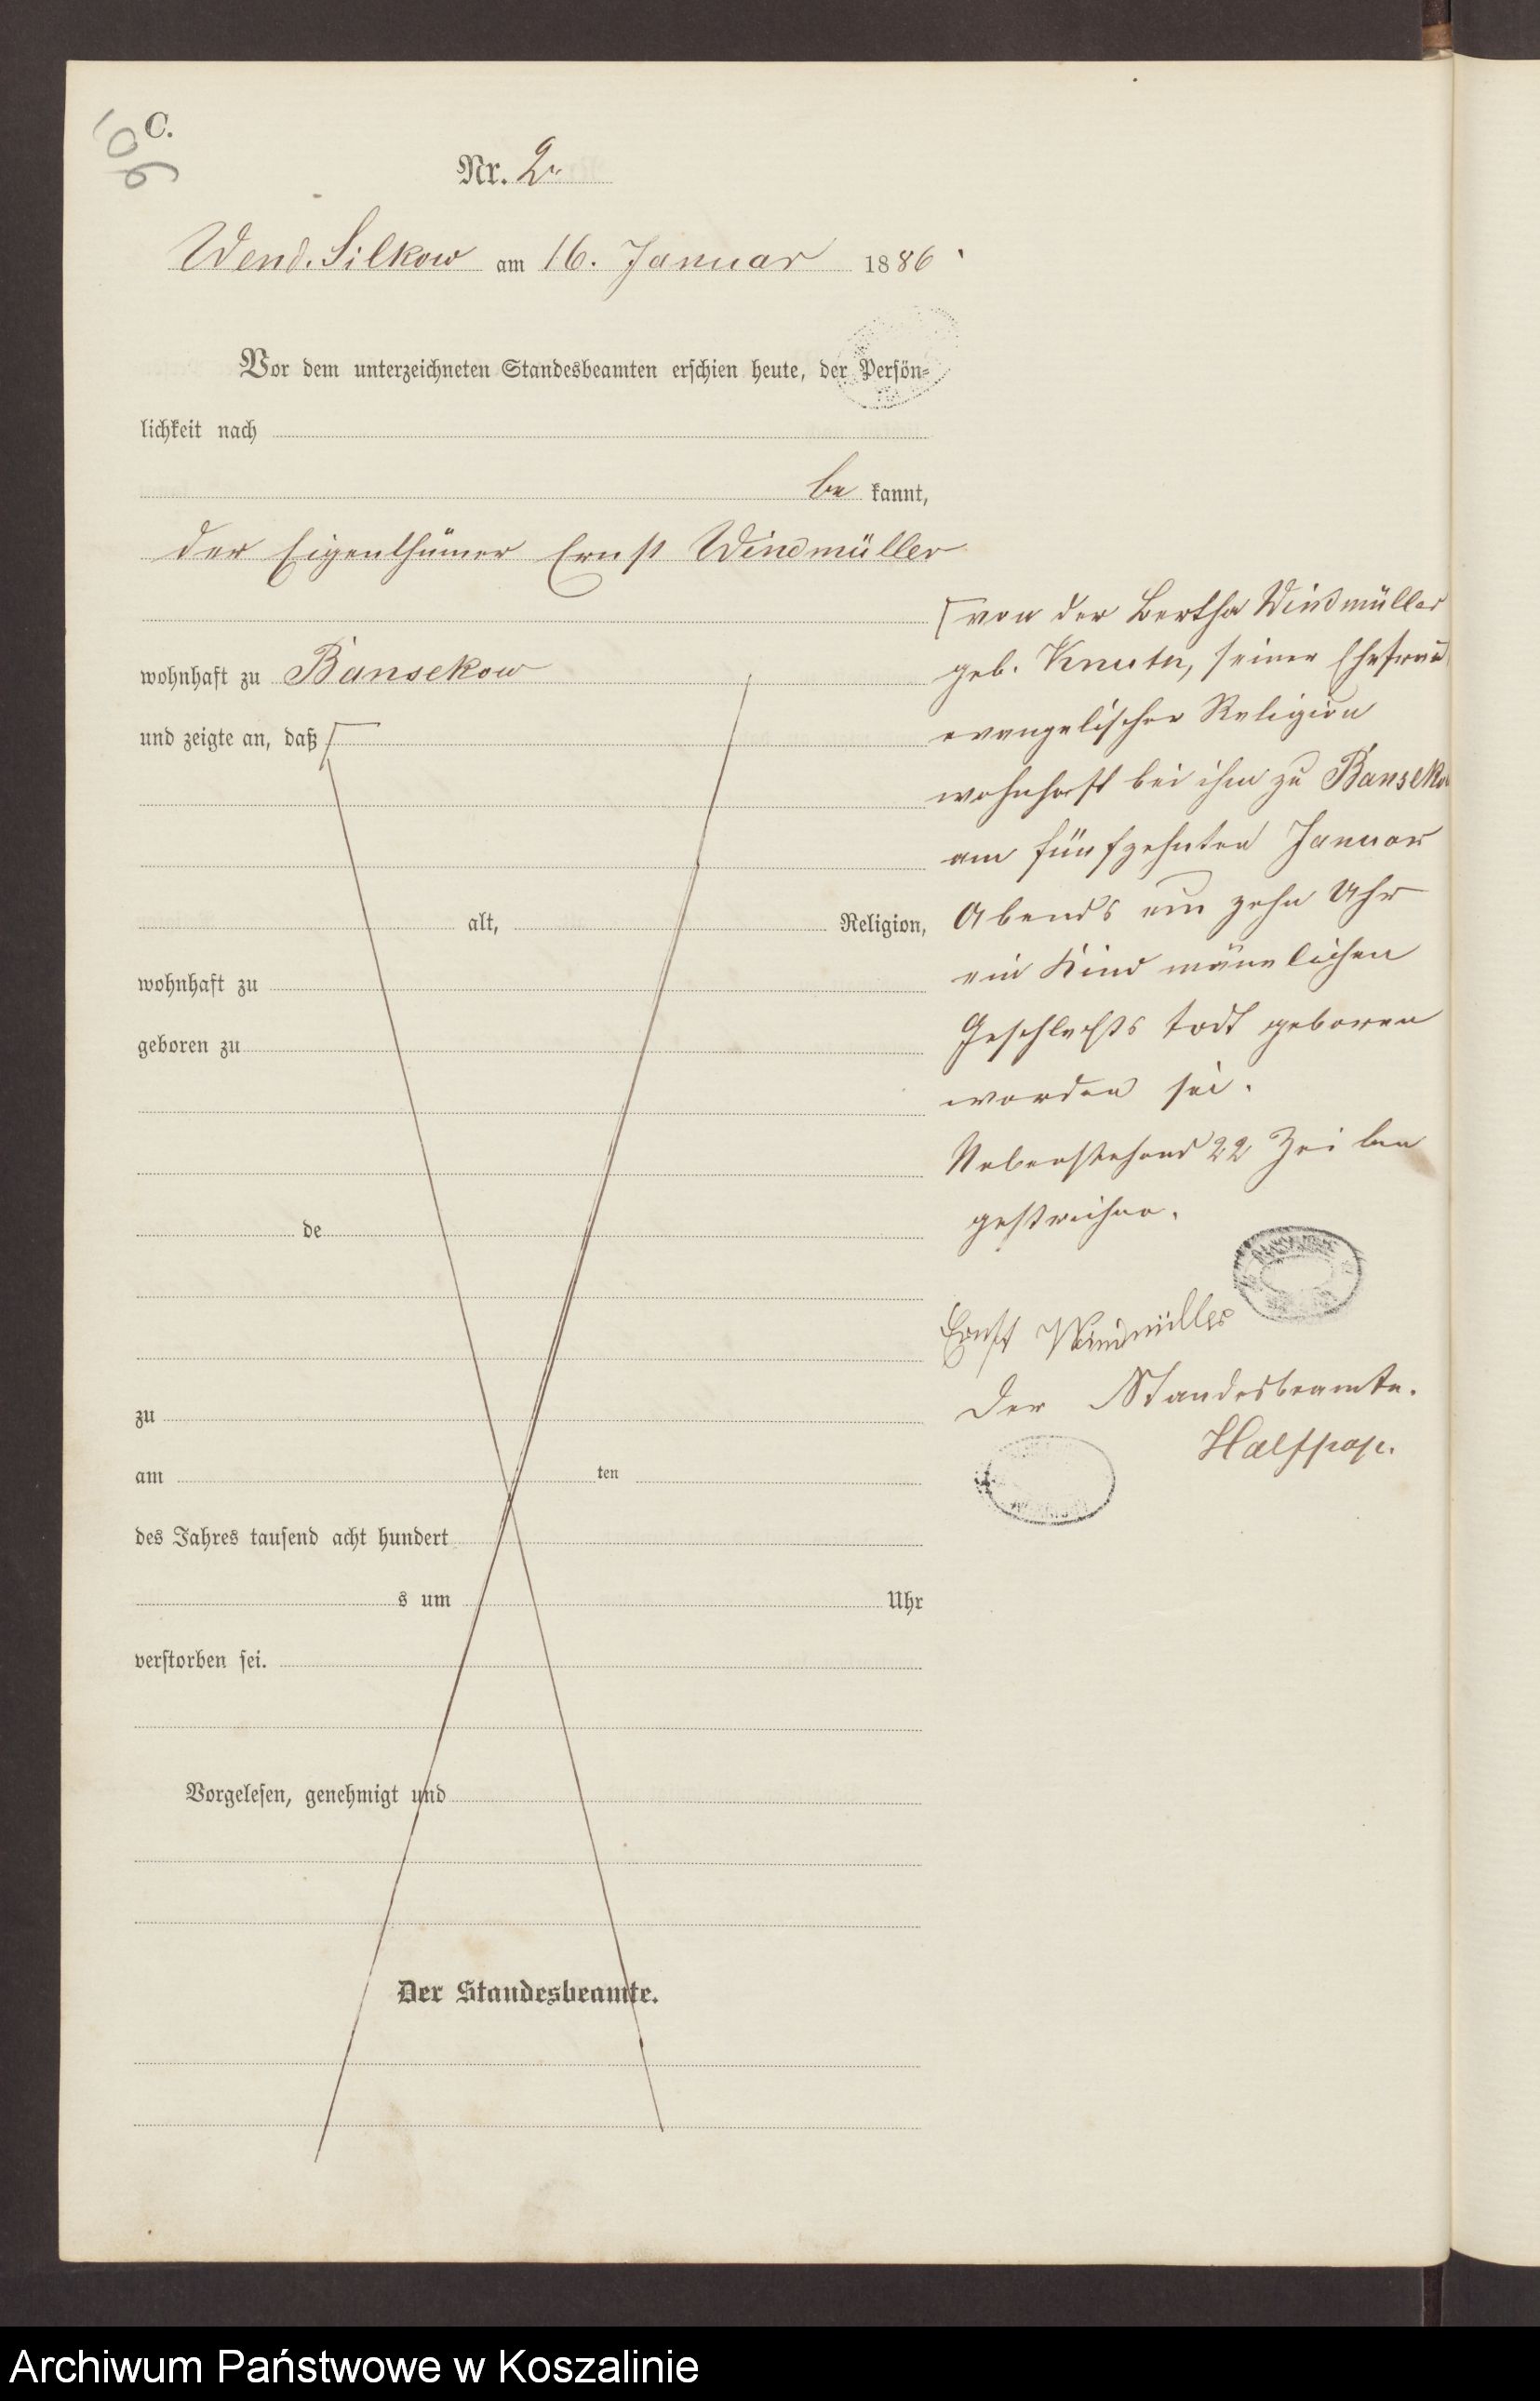 C.
106
Nr. 2
Wend. Silkow am 16. Januar 1886
Vor dem unterzeichneten Standesbeamten erschien heute, der Persön-
lichkeit nach
be kannt,
der Eigenthümer Ernst Windmüller
wohnhaft zu Bansekow
und zeigte an, daß
alt, Religion,
wohnhaft zu
geboren zu
de
zu
am ten
des Jahres tausend acht hundert
s um Uhr
verstorben sei.
Vorgelesen, genehmigt und
Der Standesbeamte.
von der Bertha Windmüller
geb. Knuth, seiner Ehefrau
evangelischer Religion
wohnhaft bei ihm zu Banseko
am fünfzehnten Januar
Abends um zehn Uhr
ein Kind männlichen
Geschlechts todt geboren
worden sei.
Nebenstehend 22 Zeilen
gestrichen.
Ernst Windmüller
Der Standesbeamte.
Halfpap.
Archiwum Państwowe w Koszalinie